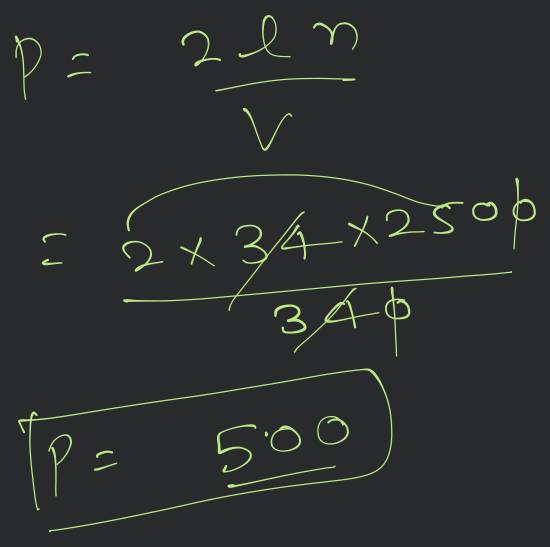 P = 2 l n / V
= 2 × 34 × 2500 / 340
P = 500